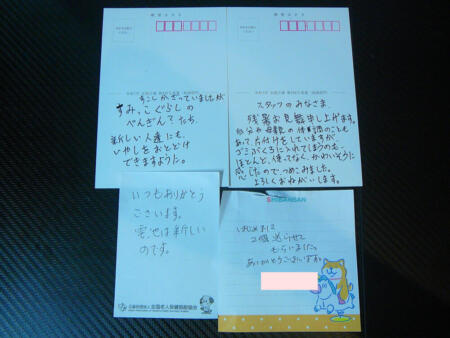 郵便はがき
すこしかざっていましたが
すみっこぐらしの
ぺんぎんてたち、
新しい人達にも、
いやしをおとどけ
できますように。
郵便はがき
スタッフのみなさま、
残暑お見舞申し上げます。
自分や母親の体調のことも
あって、片付けをしていますが
ゴミぶくろに入れてしまうのも、
ほとんど、使ってなく、かわいそうに
感じたのでつめこみました。
よろしくおねがいします。
いつもありがとう
ございます。
電池は新しい
のです。
公益社団法人 全国老人保健施設協会
SHIBANBAN
はじめまして
2個送らせて
もらいました。
ありがとうございます。